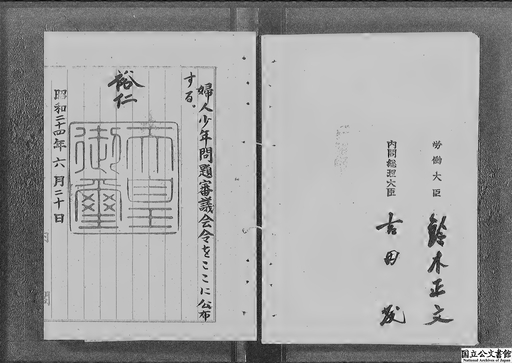 婦人少年問題審議会令をここに公布
する。
裕仁
天皇御璽
昭和二十四年六月二十日
労働大臣 鈴木正文
内閣総理大臣 吉田茂
国立公文書館
National Archives of Japan